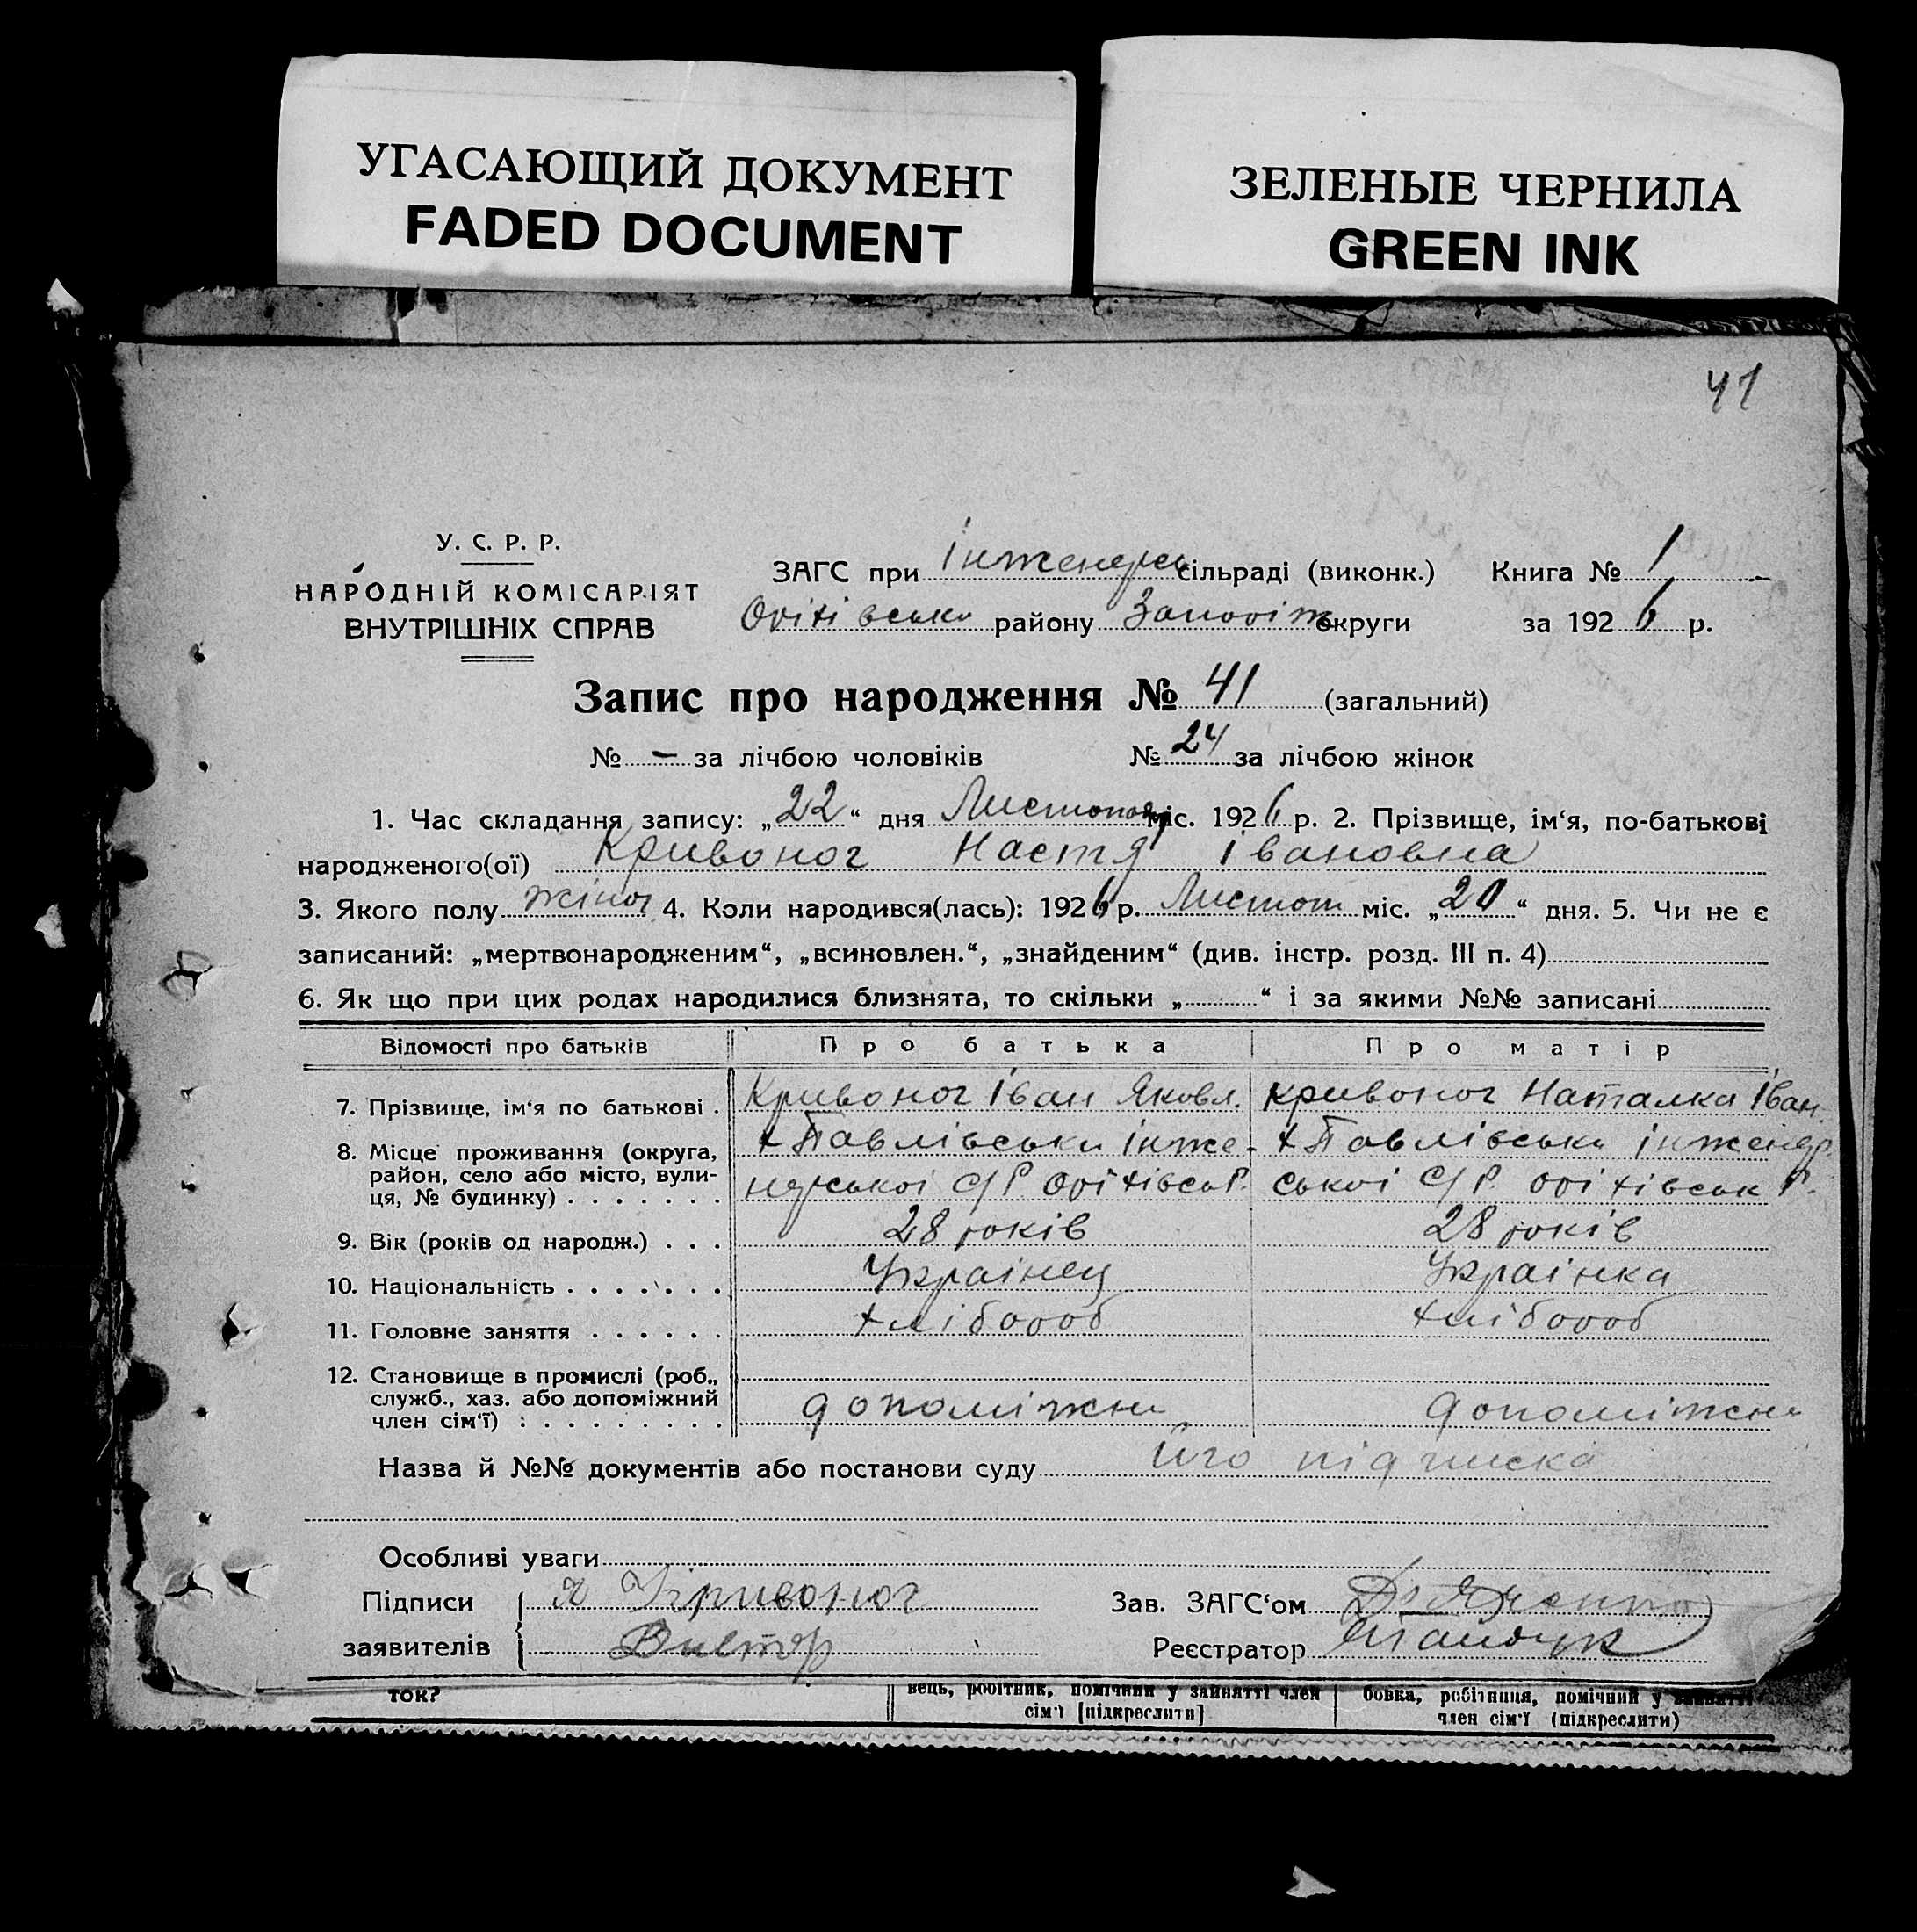 УГАСАЮЩИЙ ДОКУМЕНТ
FADED DOCUMENT
ЗЕЛЕНЫЕ ЧЕРНИЛА
GREEN INK
41
У. С. Р. Р.
НАРОДНІЙ КОМІСАРІЯТ
ВНУТРІШНІХ СПРАВ
ЗАГС при Інженерн сільраді (виконк.) Книга № 1
Оріхівськ району Запоріж округи за 1926 р.
Запис про народження № 41 (загальний)
№ — за лічбою чоловіків № 24 за лічбою жінок
1. Час складання запису: „22“ дня Листопад міс. 1926 р. 2. Прізвище, ім‘я, по-батькові
народженого(ої) Кривоног Настя Івановна
3. Якого полу жіноч 4. Коли народився(лась): 1926 р. Листоп міс. „20“ дня. 5. Чи не є
записаний: „мертвонародженим“, „всиновлен.“, „знайденим“ (див. інстр. розд. III п. 4)
6. Як що при цих родах народилися близнята, то скільки „ “ і за якими №№ записані
Відомості про батьків Про батька Про матір
7. Прізвище, ім‘я по батькові . Кривоног Іван Яковл. Кривоног Наталка Іван.
8. Місце проживання (округа, х Павлівськи Інже- х Павлівськи Інженер
район, село або місто, вули-
ця, № будинку) нерської С/Р Оріхівсь Р. ської С/Р. Оріхівськ Р.
9. Вік (років од народж.) 28 років 28 років
10. Національність Українец Українка
11. Головне заняття хлібороб хлібороб
12. Становище в промислі (роб.,
служб., хаз. або допоміжний
член сім‘ї) : допоміжни допоміжни
Назва й №№ документів або постанови суду його підписка
Особливі уваги
Підписи Кривоног Зав. ЗАГС‘ом
заявителів Реєстратор
ток? вець, робітник, помічний у занятті член бовка, робітниця, помічний у занятті
сім‘ї [підкреслити] член сім‘ї (підкреслити)